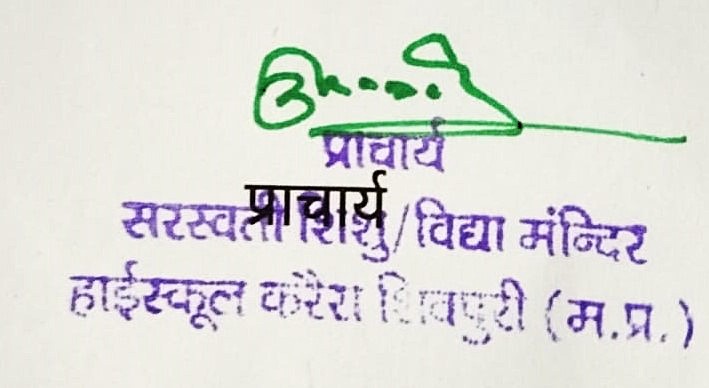 प्राचार्य
प्राचार्य
सरस्वती शिशु/विद्या मंन्दिर
हाईस्कूल करैरा शिवपुरी (म.प्र.)